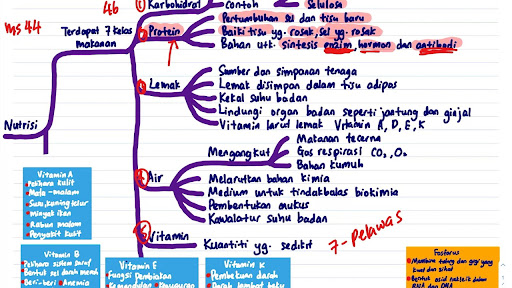 46
ms 44
Terdapat 7 kelas
makanan
Nutrisi
① Karbohidrat
contoh
Selulosa
Protein
Pertumbuhan sel dan tisu baru
Baiki tisu yg. rosak, sel yg. rosak
Bahan utk. sintesis enzim, hormon dan antibodi
Lemak
Sumber dan simpanan tenaga
Lemak disimpan dalam tisu adipos
Kekal suhu badan
Lindungi organ badan seperti jantung dan ginjal
Vitamin larut lemak Vitamin A, D, E, K
Air
Mengangkut
Makanan tecerna
Gas respirasi CO₂, O₂
Bahan kumuh
Melarutkan bahan kimia
Medium untuk tindakbalas biokimia
Pembentukan mukus
Kawalatur suhu badan
Vitamin
Kuantiti yg. sedikit
7 - pelawas
Vitamin A
Pelihara kulit
Mata - malam
Susu, kuning telur
Minyak ikan
Rabun malam
Penyakit kulit
Vitamin B
Pelihara sistem saraf
Bentuk sel darah merah
Beri-beri
Anemia
Vitamin E
Fungsi pembiakan
Kemandulan
Vitamin K
Pembekuan darah
Darah lambat beku
Fosforus
Membina tulang dan gigi yang
kuat dan sihat
Bentuk asid nukleik dalam
RNA dan DNA